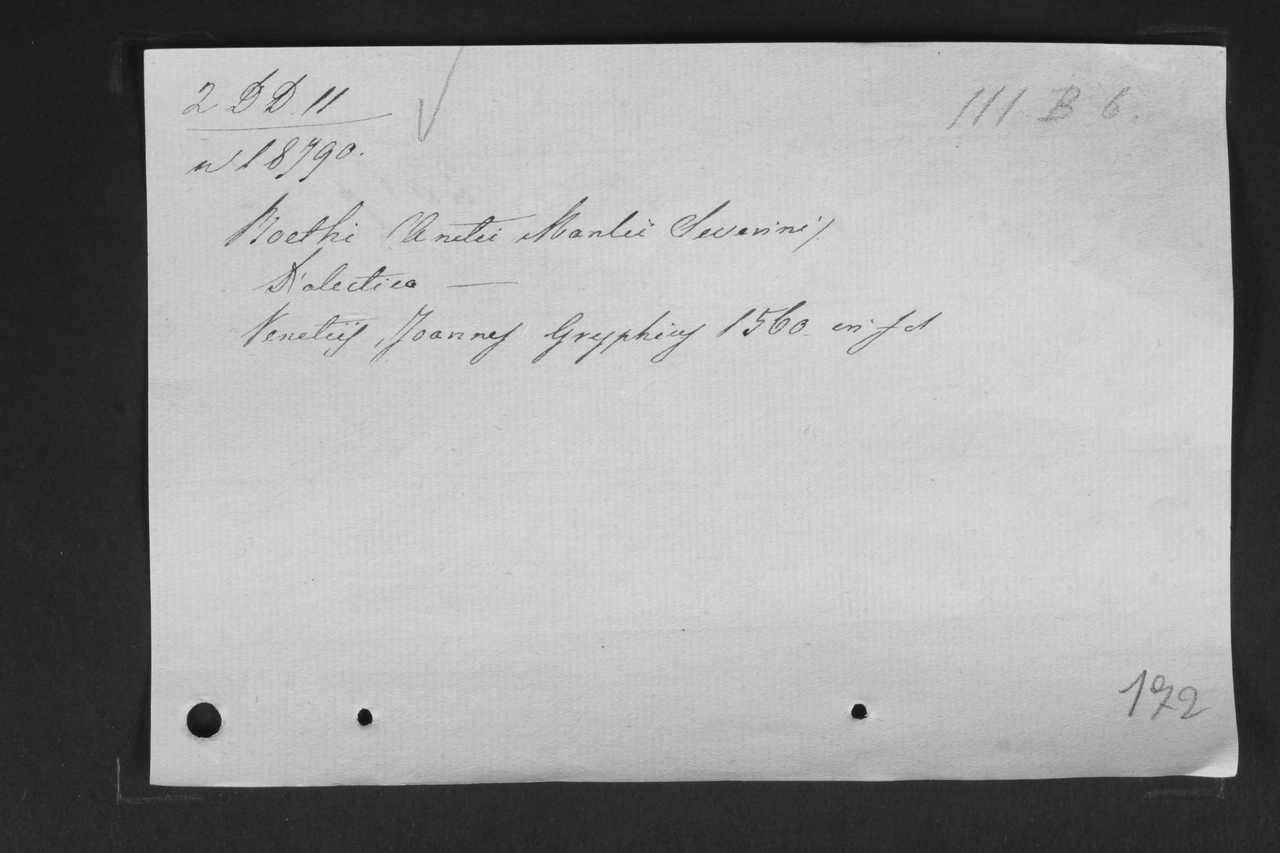 2 DD 11
III B 6.
n 18790.
Boethi Anitii Manlii Severini)
Dialectica —
Venetiis, Joannes Gryphius 1560 in fol
172